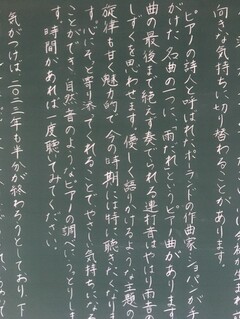 向きな気持ちに切り替わることがあります。
ピアノの詩人と呼ばれたポーランドの作曲家ショパンが手
がけた名曲の一つに、雨だれというピアノ曲があります
曲の最後まで絶えず奏でられる連打音はやはり雨音の
しずくを思わせます。優しく語りかけるような主題の
旋律も甘く魅力的で、今の時期には特に聴きたくなりま
す。心にそっと寄り添ってくれることでやさしい気持ちにな
ことができ、自然音のようなピアノの調べにうっとりしま
す。時間があれば一度聴いてみてください。
気がつけば、二〇二二年も半分が終わろうとしており、下